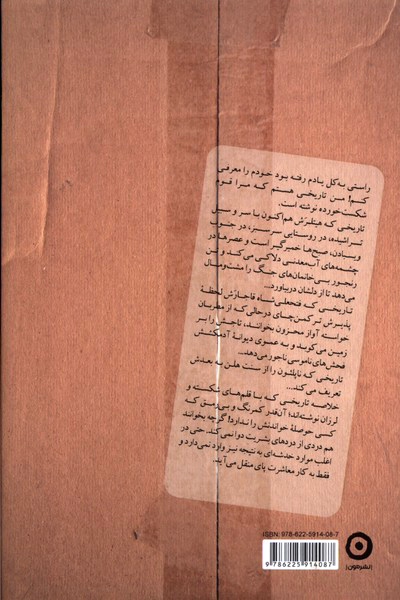 راستی به‌کل یادم رفته بود خودم را معرفی
کنم! من تاریخی هستم که مرا قوم
شکست‌خورده نوشته است.
تاریخی که هیتلرش هم‌اکنون با سر و سبیل
تراشیده، در روستایی سرسبز، در جنوب
ویسبادن، صبح‌ها خمیرگیر است و عصرها در
چشمه‌های آب‌معدنی دلاکی می‌کند و تن
رنجور بی‌خانمان‌های جنگ را مشت‌ومال
می‌دهد تا از دلشان دربیاورد.
تاریخی که فتحعلی‌شاه قاجارش لحظهٔ
پذیرش ترکمن‌چای درحالی‌که از مطربان
خواسته آواز محزون بخوانند، تاجش را بر
زمین می‌کوبد و به عموی دیوانهٔ آدمکشش
فحش‌های ناموسی ناجور می‌دهد.
تاریخی که ناپلئون را از سنت هلن به بعدش
تعریف می‌کند...
خلاصه تاریخی که با قلم‌های شکسته و
لرزان نوشته‌اند؛ آن‌قدر کمرنگ و بی‌رمق که
کسی حوصلهٔ خواندنش را ندارد! گرچه بخوانند
هم دردی از دردهای بشریت دوا نمی‌کند. حتی در
اغلب موارد خدشه‌ای به نتیجه نیز وارد نمی‌دارد و
فقط به کار معاشرت پای منقل می‌آید.
ISBN: 978-622-5914-08-7
9 786225 914087
نشر هون